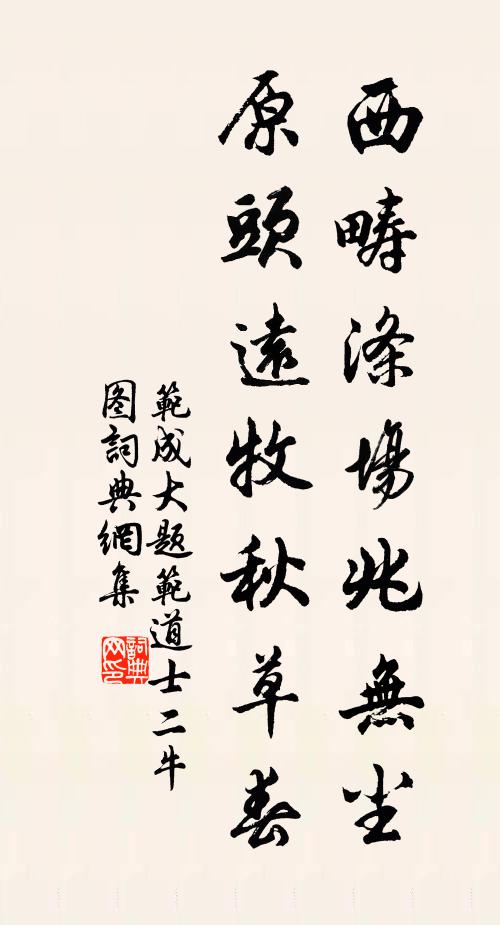 西疇滌場兆無塵
原頭遠牧秋草春
範成大題範道士二牛
图詞典網集
詞典
网印